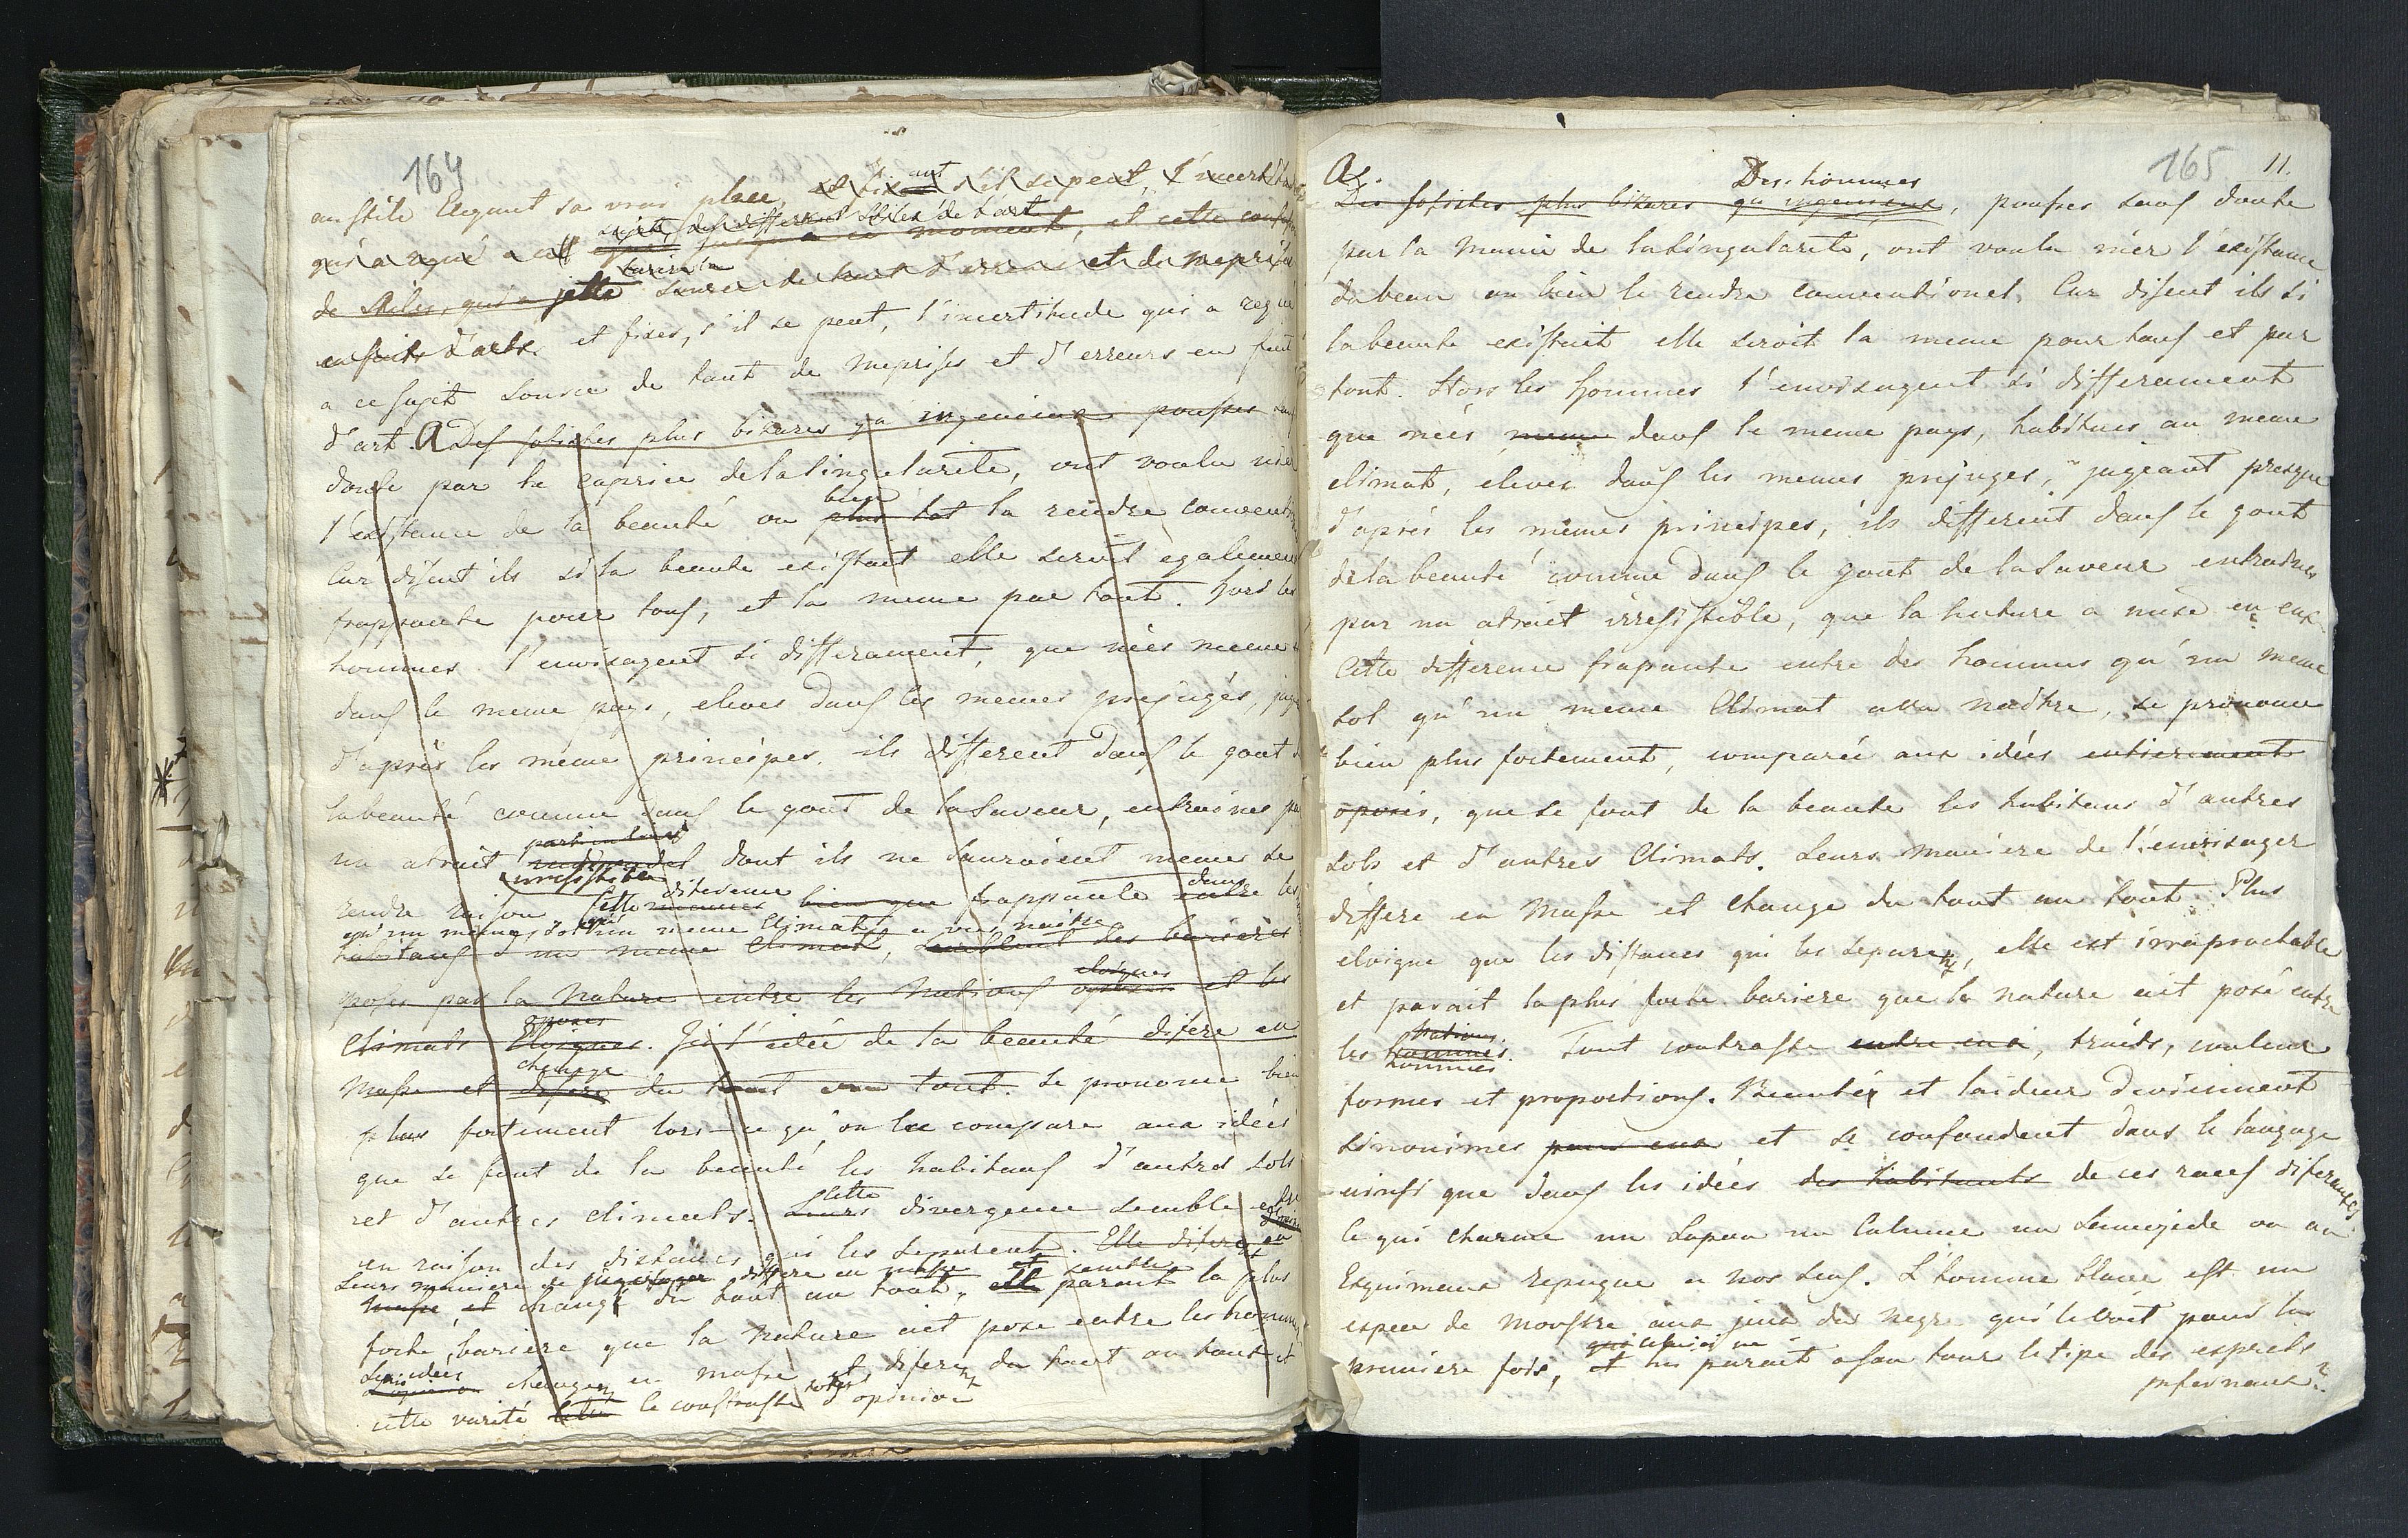 164
au stile elegant sa vrai place, et fixant s'il se peut, l'incertitude
sujets des differents stiles de l'art
qui a regné a cet jusqu'a ce moment, et cette
tarir la
de stiles, qui a jetté source de tant d'erreurs et de meprises
en faits d'arts. et fixer, s'il se peut, l'incertitude qui a regné
a ce sujet source de tant de meprises et d'erreurs en fait
d'art. A Des sofistes plus bizares qu'ingenieux pousses
doute par le caprice de la singularité, ont voulu nier
bien
l'existance de la beauté ou plus tot la rendre
Car disent ils si la beauté existait elle seroit egalement
frappante pour tous, et la meme par tout. hors les
hommes l'envisagent si differament, que nées meme
dans le meme pays, elevés dans les memes prejugés,
d'après les même principes. ils different dans le gout
la beauté comme dans le gout de la saveur, entrainés
particulier
un atrait dont ils ne sauroient meme se
irresistible
rendre raison. Cette diference bien que frappante dans entre les
qu'un meme sol qu'un meme climat a vus naitre
habitans d'un meme climat, semblent des barieres
eloignes
poses par la nature entre les nations et les
oposés
climats Eloignes. Ici l'idée de la beauté difere en
change
masse et difere du tout au tout. se prononce bien
plus fortement lors-ce qu'on la compare aux idées
que se font de la beauté les habitans d'autres sols
cette
et d'autres climats. Leurs divergence semble
en raison des distances qui les separent. Elle difere en
Leurs maniere de differe en masse et semble
masse et change du tout au tout, elle parait la plus
forte bariere que la nature ait posé entre les hommes
Les idées
L'opinion changent en masse et diferent du tout au tout et
cette varieté le constraste d'opinion
165 11.
A.
Des hommes
Des sofistes plus bizares qu'ingenieux, pousses sans doute
par la manie de la singularité, ont voulu nier l'existance
du beau ou bien le rendre conventionel. Car disent ils si
la beauté existait elle seroit la meme pour tous et par
tout. Hors les hommes l'envisagent si differament
que nées meme dans le meme pays, habitues au meme
climat, elevés dans les memes prejuges, jugeant presque
d'après les mêmes principes, ils different dans le gout
de la beauté comme dans le gout de la saveur entrainés
par un atrait irresistible, que la nature a mise en eux
Cette difference frapante entre des hommes qu'un meme
sol qu'un meme Climat a vu naitre, se prononce
bien plus fortement, comparée aux idées entierement
oposés, que se font de la beauté les habitans d'autres
sols et d'autres Climats. Leurs maniere de l'envisager
differe en masse et change du tout au tout. Plus
eloigne que les distances qui les separent, elle est irraprochable
et parait la plus forte bariere que la nature ait posé entre
Nations
les hommes. Tout contraste entre eux, traits, couleur
hommes
formes et proportions. Beautés et laideur deviennent
sinonimes pour eux et se confondent dans le langage
ainsi que dans les idées des habitants de ces races diferentes.
Ce qui charme un Lapon un Calmuc un Samojede ou un
Esquimaux repugne a nos sens. L'homme blanc est une
espece de monstre aux yeux du negre qui le voit pour la
qui celui ci ne
premiere fois, et lui parait a son tour le tipe des esprits
infernaux.